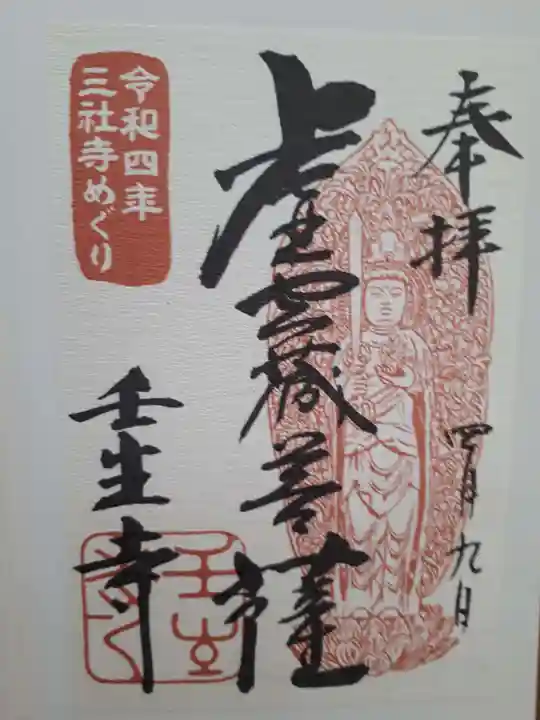 奉拝
四月九日
虚空蔵菩薩
令和四年
三社寺めぐり
壬生寺
壬生